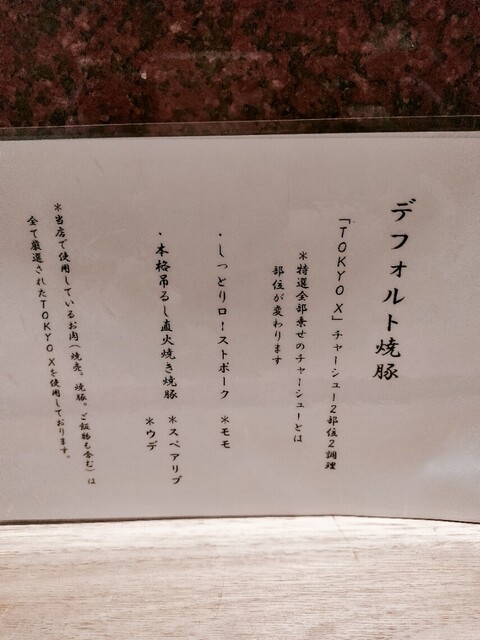 デフォルト焼豚
「TOKYO X」チャーシュー2部位2調理
＊特選全部乗せのチャーシューとは
部位が変わります
・しっとりローストポーク ＊モモ
・本格吊るし直火焼き焼豚 ＊スペアリブ
＊ウデ
＊当店で使用しているお肉(焼売。焼豚。ご飯物も含む)は
全て厳選されたTOKYO Xを使用しております。